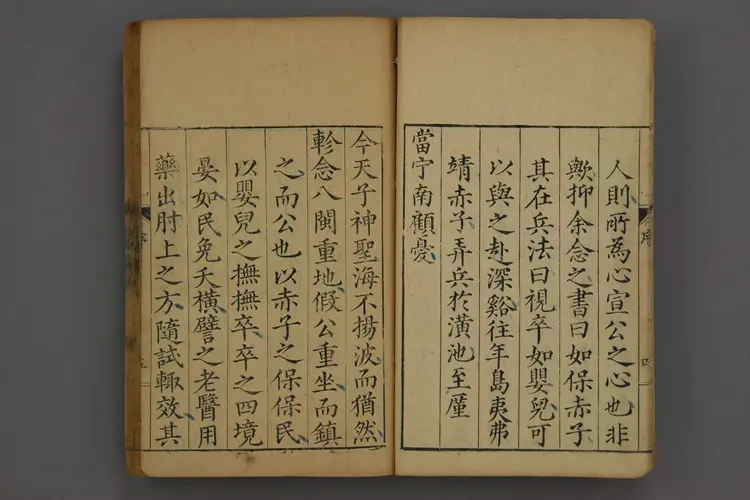 人則所為心宣公之心也非
歟抑余念之書曰如保赤子
其在兵法曰視卒如嬰兒可
以與之赴深谿往年島夷弗
靖赤子弄兵於潢池至廑
當宁南顧憂
今天子神聖海不揚波而猶然
軫念八閩重地假公重坐而鎮
之而公也以赤子之保保民
以嬰兒之撫撫卒卒之四境
晏如民免夭橫譬之老醫用
藥出肘上之方隨試輒效其
序
四
序
五